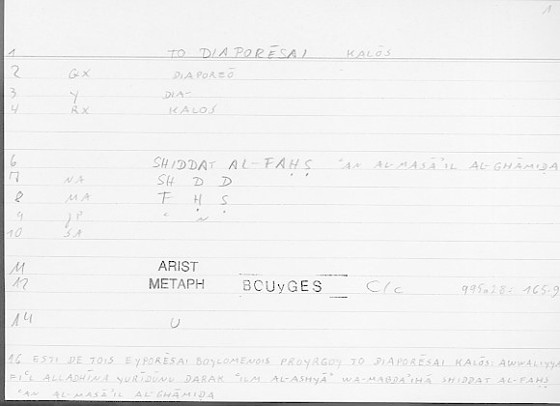 1
1 TO DIAPORĒSAI KALŌS
2 GX DIAPOREŌ
3 Y DIA-
4 RX KALOS
6 SHIDDAT AL-FAḤṢ ʿAN AL-MASĀʾIL AL-GHĀMIḌA
7 NA SH D D
8 MA F Ḥ Ṣ
9 JP ʿ N
10 SA
11 ARIST
12 METAPH BOUYGES C/c 995a28: 165.9
14 U
16 ESTI DE TOIS EYPORĒSAI BOYLOMENOIS PROYRGOY TO DIAPORĒSAI KALŌS: AWWALIYYA
FIʿL ALLADHĪNA YURĪDŪNU DARAK ʿILM AL-ASHYĀʾ WA-MABDAʾIHĀ SHIDDAT AL-FAḤṢ
ʿAN AL-MASĀʾIL AL-GHĀMIḌA